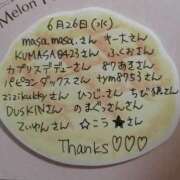 Melon
6月26日(水)
masa.masa.さん キー大さん
KUMASA8423さん ふくおさん
カプリスデデューさん 87あきさん
パピヨンダックスさん tym8753さん
zizikubbyさん ひつじーさん ちびりさん
DUSKINさん のまぐっさんさん
てぃねんさん ☆こう★さん
Thanks♡♡♡